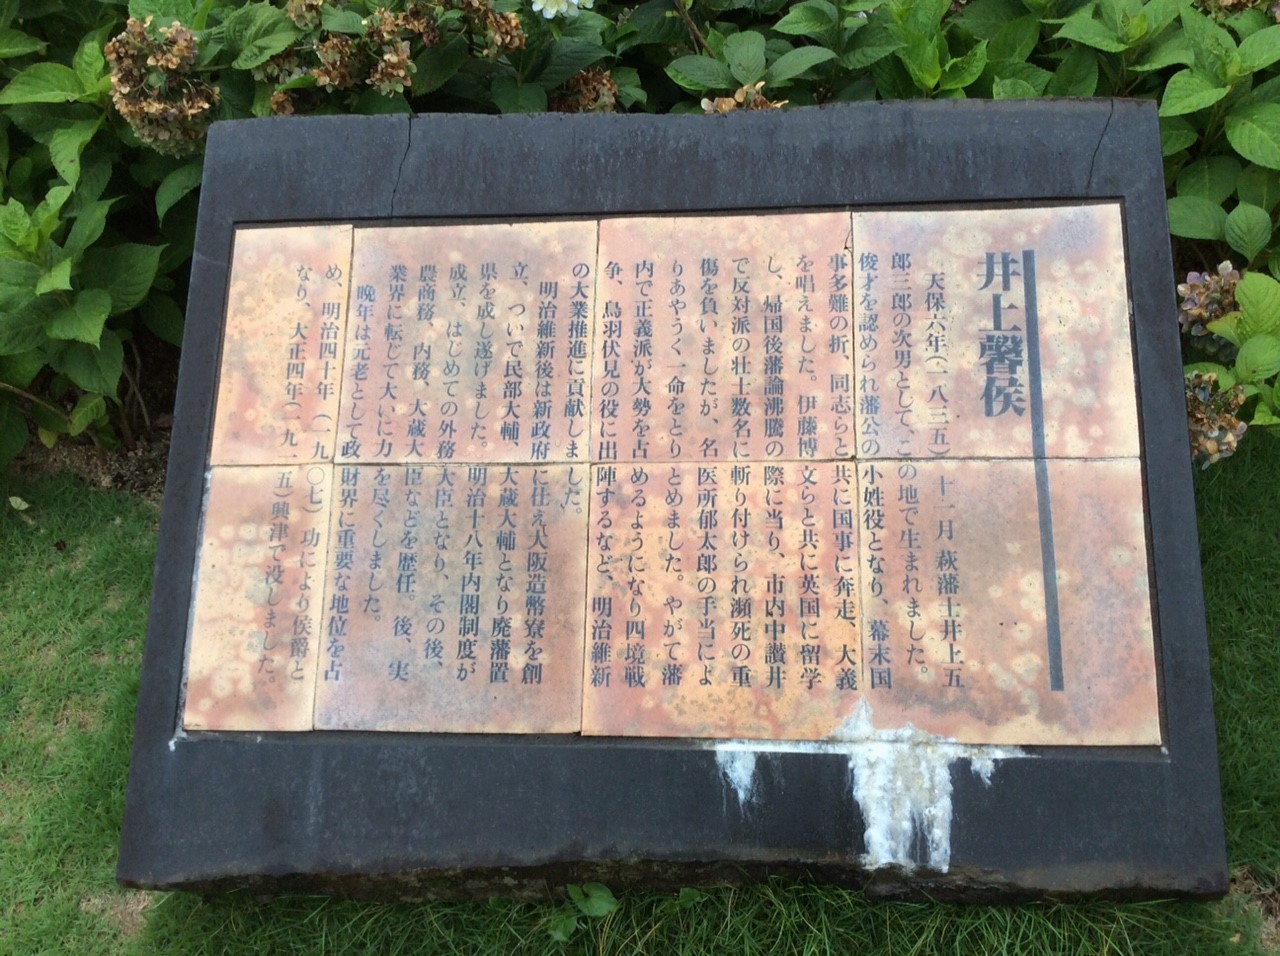 井上馨侯
天保六年(一八三五)十一月萩藩士井上五
郎三郎の次男として、この地で生まれました。
俊才を認められ藩公の小姓役となり、幕末国
事多難の折、同志らと共に国事に奔走、大義
を唱えました。伊藤博文らと共に英国に留学
し、帰国後藩論沸騰の際に当り、市内中讃井
で反対派の壮士数名に斬り付けられ瀕死の重
傷を負いましたが、名医所郁太郎の手当によ
りあやうく一命をとりとめました。やがて藩
内で正義派が大勢を占めるようになり四境戦
争、鳥羽伏見の役に出陣するなど、明治維新
の大業推進に貢献しました。
明治維新後は新政府に仕え大阪造幣寮を創
立、ついで民部大輔、大蔵大輔となり廃藩置
県を成し遂げました。明治十八年内閣制度が
成立、はじめての外務大臣となり、その後、
農商務、内務、大蔵大臣などを歴任。後、実
業界に転じて大いに力を尽くしました。
晩年は元老として政財界に重要な地位を占
め、明治四十年(一九〇七)功により侯爵と
なり、大正四年(一九一五)興津で没しました。